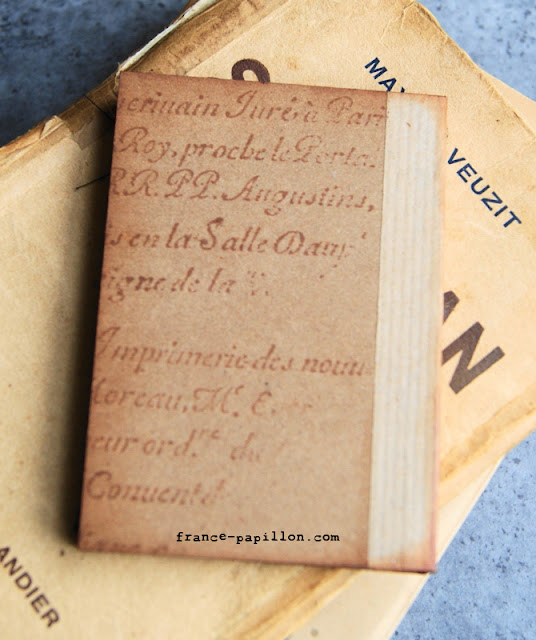 MA
VEUZIT
AN
ANDIER
criuain Juré à Par
Roy, proche le Porta
R.R.P.P. Augustins,
s en la Salle Dau
igne de la
Imprimerie des nouu
Moreau, M.
eur ord.re du
Conuent d
france-papillon.com